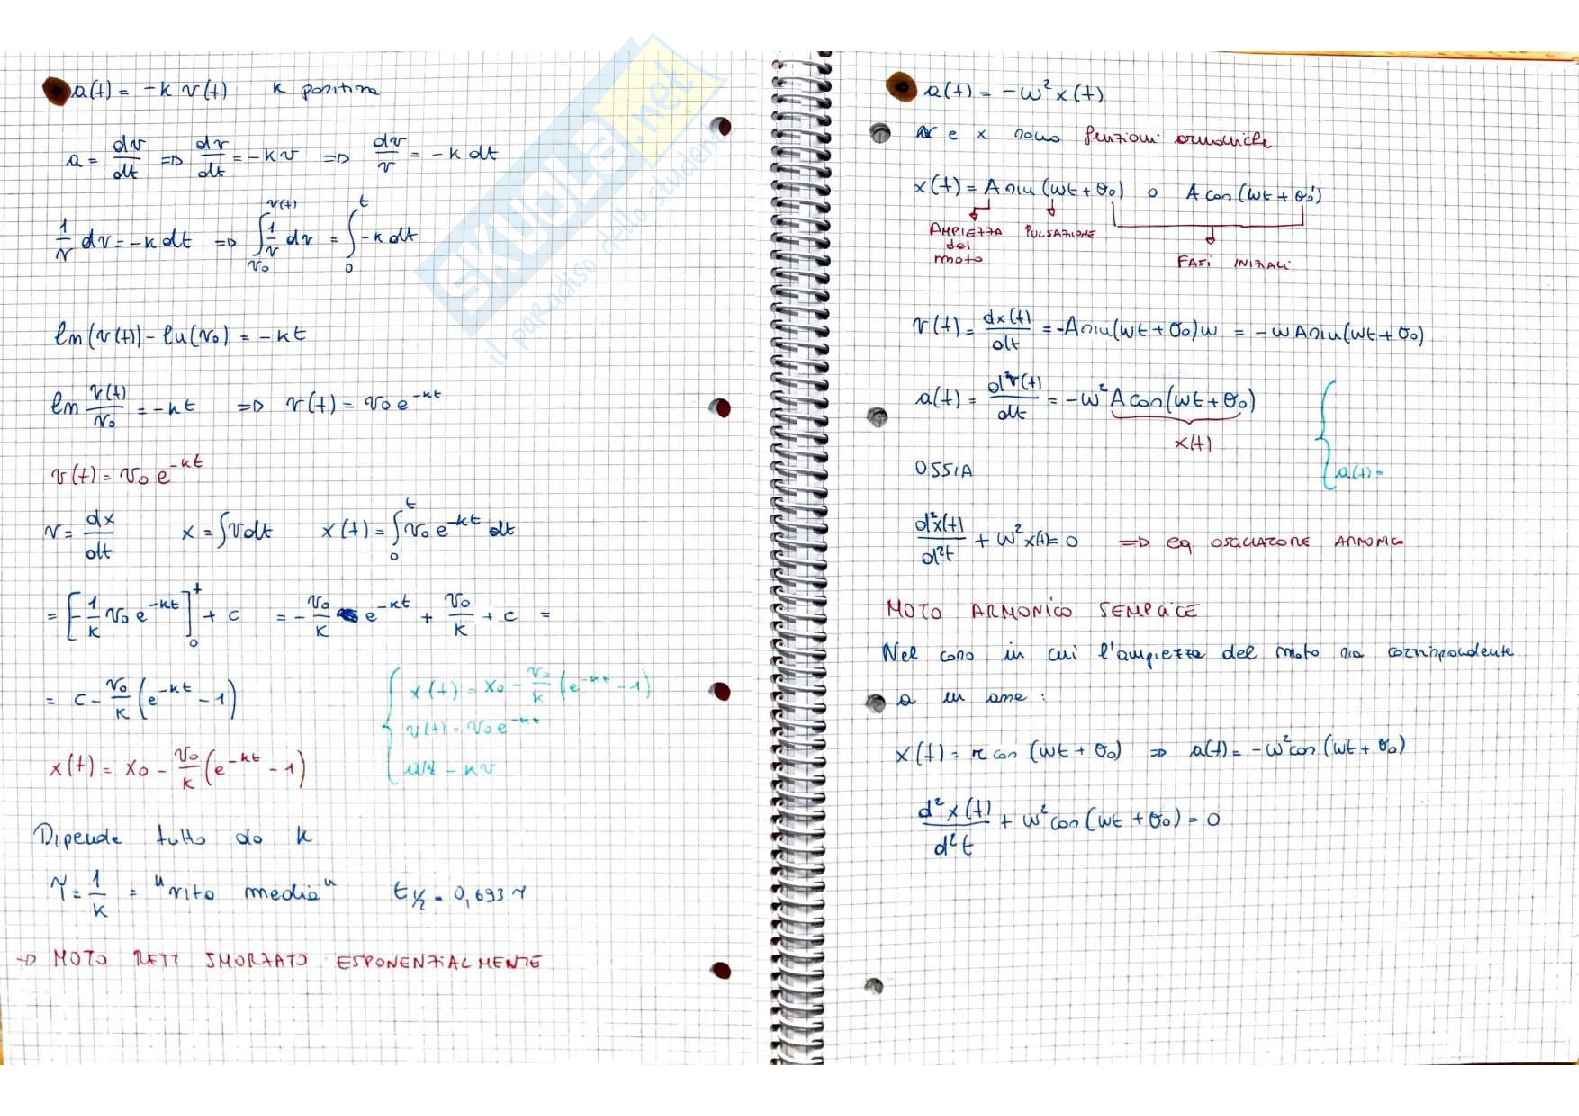 a(t) = -k v(t)   k positiva
a = dv/dt => dv/dt = -kv => dv/v = -k dt
1/v dv = -k dt => ∫_{v₀}^{v(t)} 1/v dv = ∫_0^t -k dt
ln(v(t)) - ln(v₀) = -kt
ln v(t)/v₀ = -kt => v(t) = v₀ e^{-kt}
v(t) = v₀ e^{-kt}
v = dx/dt   x = ∫v dt   x(t) = ∫_0^t v₀ e^{-kt} dt
= [-1/k v₀ e^{-kt}]_0^t + c = -v₀/k e^{-kt} + v₀/k + c =
= c - v₀/k (e^{-kt} - 1)
x(t) = x₀ - v₀/k (e^{-kt} - 1)
x(t) = x₀ - v₀/k (e^{-kt} - 1)
v(t) = v₀ e^{-kt}
a(t) = -kv
Dipende tutto da k
τ = 1/k = "vita media"   t½ = 0,693 τ
-> MOTO RETT SMORZATO ESPONENZIALMENTE
a(t) = -ω² x(t)
v e x sono funzioni armoniche
x(t) = A sin (ωt + θ₀) o A cos (ωt + θ₀')
AMPIEZZA
del
moto
PULSAZIONE
FASI INIZIALI
v(t) = dx(t)/dt = -A sin(ωt + θ₀)ω = -ωA sin(ωt + θ₀)
a(t) = d²v(t)/dt = -ω² A cos(ωt + θ₀)
x(t)
a(t) =
OSSIA
d²x(t)/d²t + ω² x(t) = 0 => eq OSCILLATORE ARMONIC
MOTO ARMONICO SEMPLICE
Nel caso in cui l'ampiezza del moto sia corrispondente
a un asse :
x(t) = r cos (ωt + θ₀) => a(t) = -ω² cos (ωt + θ₀)
d²x(t)/d²t + ω² cos (ωt + θ₀) = 0
SKUOLA.net
il paradiso dello studente